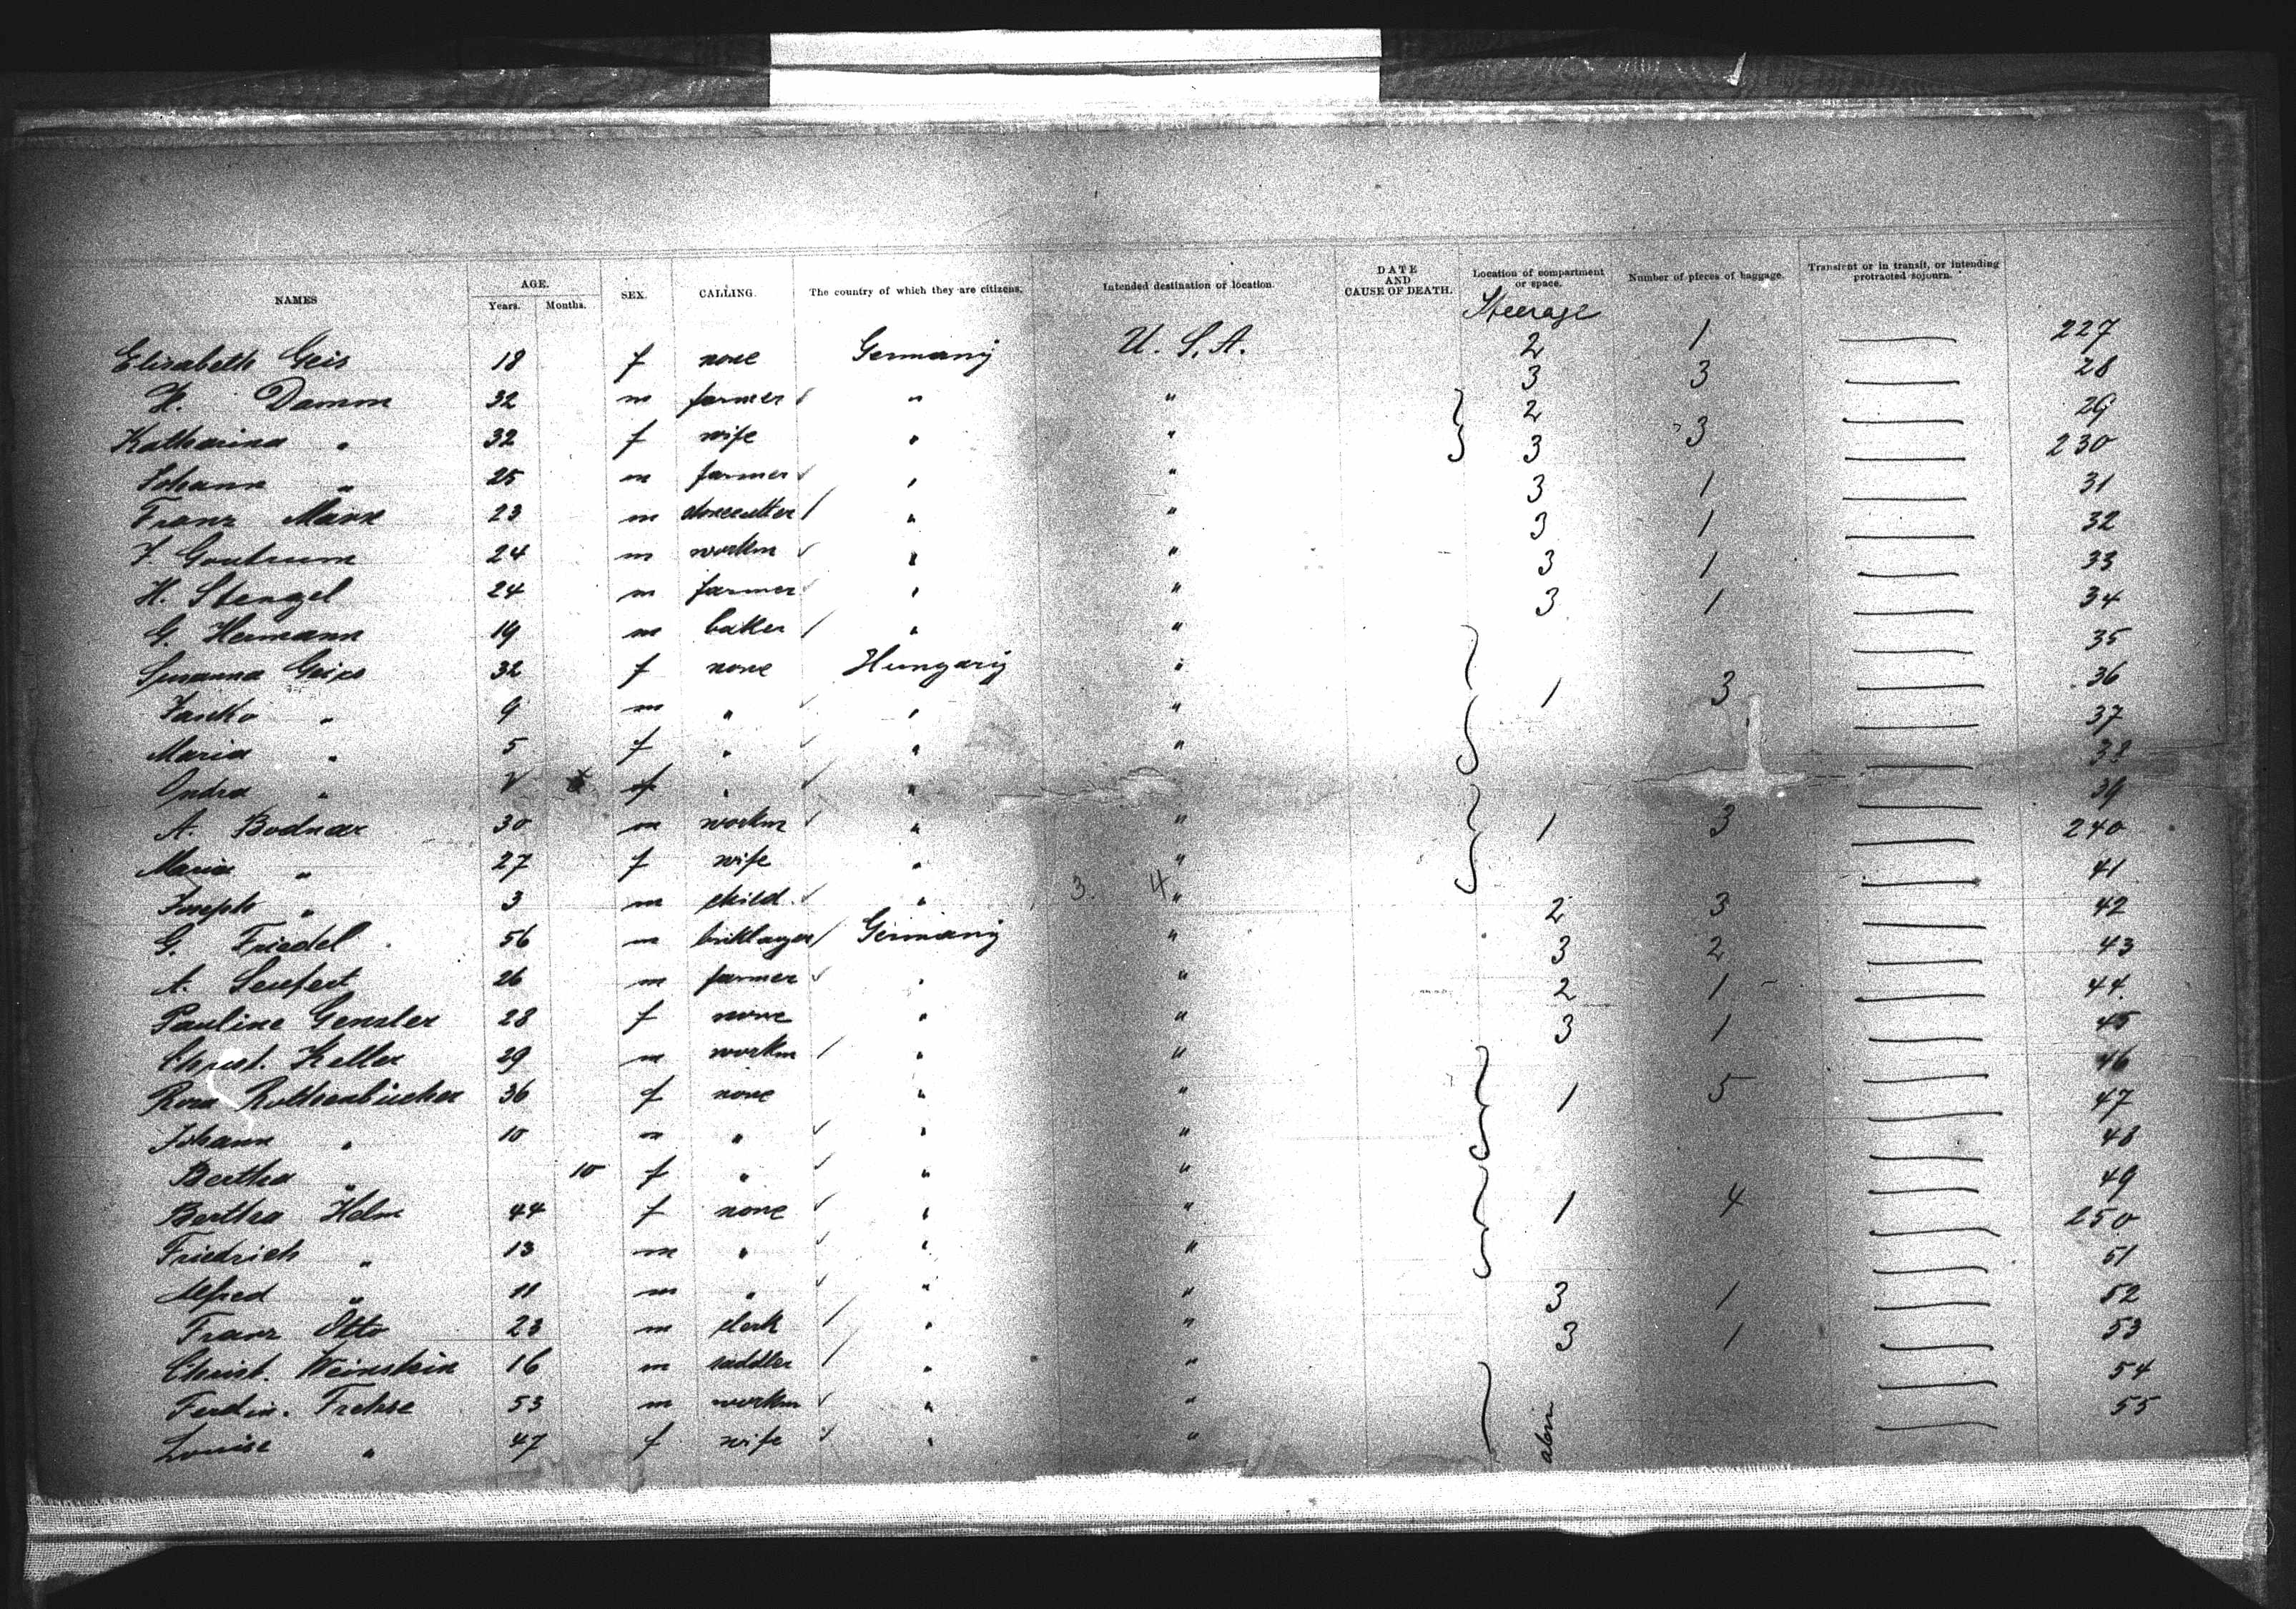 NAMES AGE. Years. Months. SEX. CALLING. The country of which they are citizens. Intended destination or location. DATE AND CAUSE OF DEATH. Location of compartment or space. Number of pieces of baggage. Transient or in transit, or intending protracted sojourn.
Steerage
Elisabeth Geis 18 f none Germany U. S. A. 2 1 — 227
H. Damm 32 m farmer " " 3 3 — 28
Katharina " 32 f wife " " 2 — 29
Johann " 25 m farmer " " 3 3 — 230
Franz Marx 23 m stonecutter " " 3 1 — 31
J. 24 m workm " " 3 1 — 32
H. Stengel 24 m farmer " " 3 1 — 33
G. Hermann 19 m baker " " 3 1 — 34
Susanna 32 f none Hungary " — 35
Janko " 9 m " " " 1 3 — 36
Maria " 5 f " " " — 37
Andra " f " " " — 38
A. Bodnar 30 m workm " " — 39
Maria " 27 f wife " " 1 3 — 240
Joseph " 3 m child " 3. 4 " — 41
G. Friedel 56 m briklayer Germany " 2 3 — 42
A. Seufert 26 m farmer " " 3 2 — 43
Pauline Gensler 28 f none " " 2 1 — 44
Christ. Keller 29 m workm " " 3 1 — 45
Rosa Rothenbücher 36 f none " " — 46
Johann " 10 m " " " 1 5 — 47
Bertha " 10 f " " " — 48
Bertha Helm 44 f none " " — 49
Friedrich " 13 m " " " 1 4 — 250
Alfred " 11 m " " " — 51
Franz Otto 23 m clerk " " 3 1 — 52
Christ. Weinstein 16 m saddler " " 3 1 — 53
Ferdin. Frehse 53 m workm " " — 54
Louise " 47 f wife " " — 55